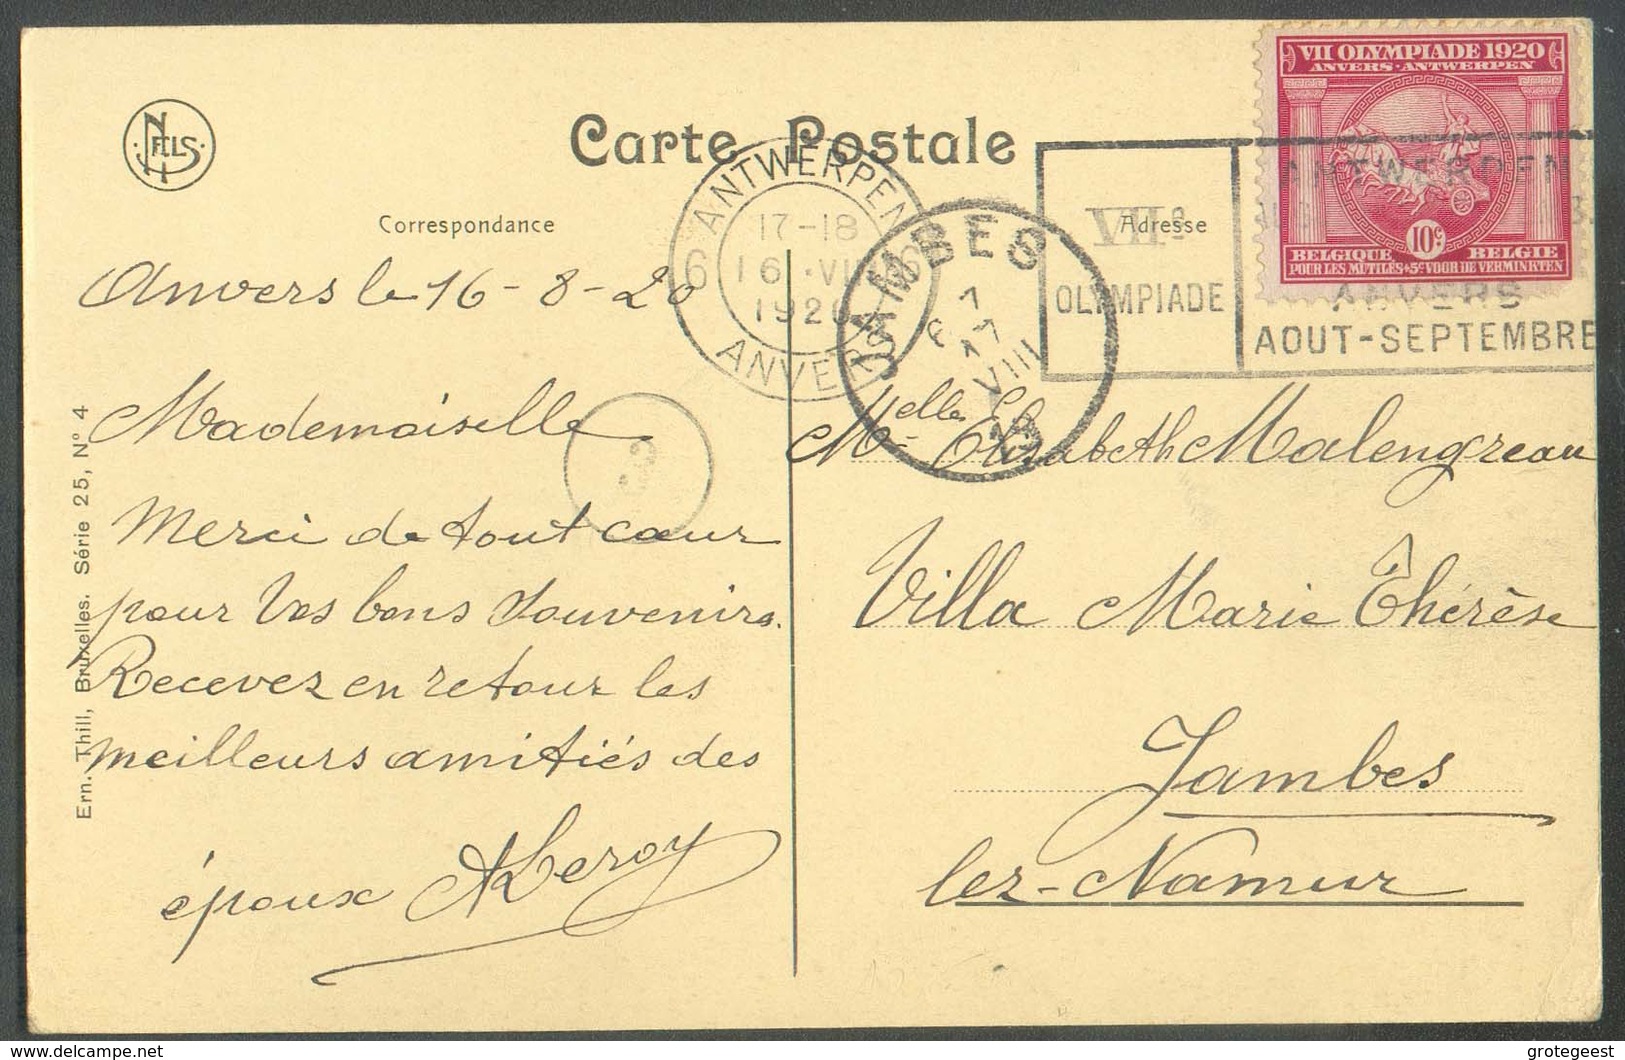 Carte Postale
NELS
Correspondance
Adresse
ANTWERPEN
6 6
17-18
16 ·VII
1920
ANVERS
JAMBES
17
VIII
VIIe
OLYMPIADE
ANTWERPEN
ANVERS
AOUT-SEPTEMBRE
VII OLYMPIADE 1920
ANVERS·ANTWERPEN
10c
BELGIQUE BELGIE
POUR LES MUTILÉS+5c VOOR DE VERMINKTEN
Anvers le 16-8-20
Mademoiselle
Merci de tout cœur
pour Vos bons Souvenirs.
Recevez en retour les
meilleurs amitiés des
époux ALeroy
Melle Elisabeth Malengreau
Villa Marie Thérèse
Jambes
lez-Namur
Ern. Thill, Bruxelles. Série 25, N° 4
© grotegeest